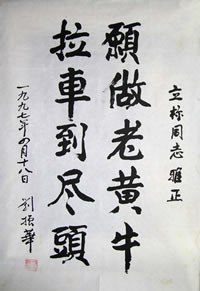 立标同志雅正
願做老黄牛
拉車到尽頭
一九九七年四月十八日
劉振華